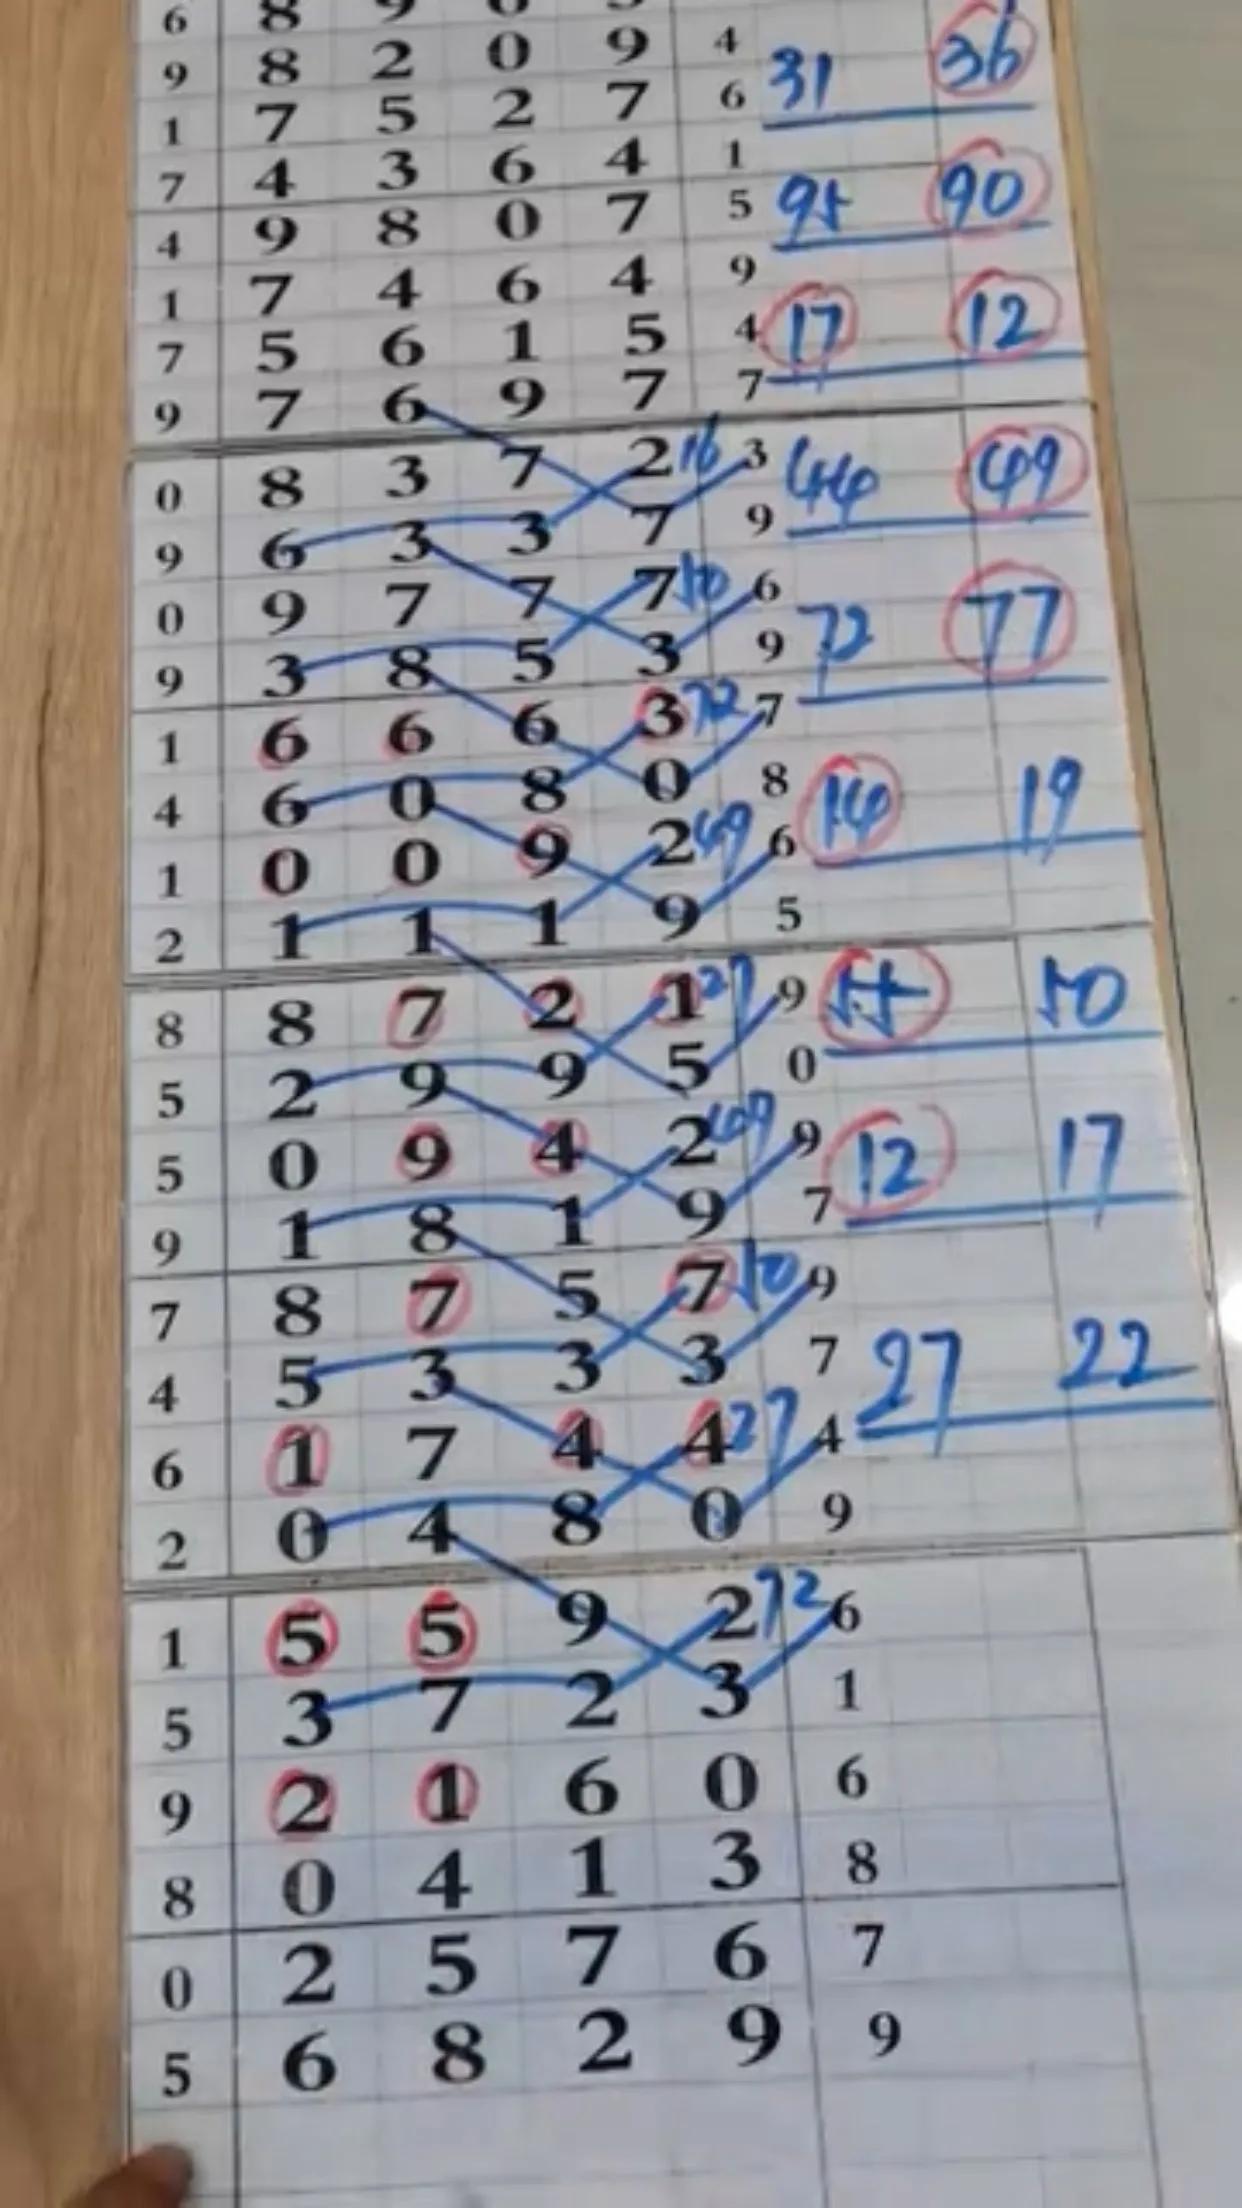 6 8 9
9 8 2 0 9 4 31 36
1 7 5 2 7 6
7 4 3 6 4 1
4 9 8 0 7 5 95 90
1 7 4 6 4 9
7 5 6 1 5 4 17 12
9 7 6 9 7 7
0 8 3 7 2 16 3 44 49
9 6 3 3 7 9
0 9 7 7 7 50 6
9 3 8 5 3 9 72 77
1 6 6 6 3 72 7
4 6 0 8 0 8 14 19
1 0 0 9 2 49 6
2 1 1 1 9 5
8 8 7 2 1 27 9 55 50
5 2 9 9 5 0
5 0 9 4 2 49 9 12 17
9 1 8 1 9 7
7 8 7 5 7 50 9
4 5 3 3 3 7 27 22
6 1 7 4 4 27 4
2 0 4 8 0 9
1 5 5 9 2 72 6
5 3 7 2 3 1
9 2 1 6 0 6
8 0 4 1 3 8
0 2 5 7 6 7
5 6 8 2 9 9